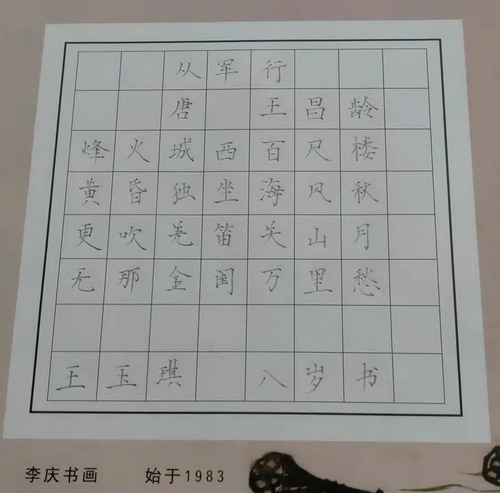 从军行
唐 王昌龄
烽火城西百尺楼
黄昏独坐海风秋
更吹羌笛关山月
无那金闺万里愁
王玉琪 八岁书
李庆书画 始于1983